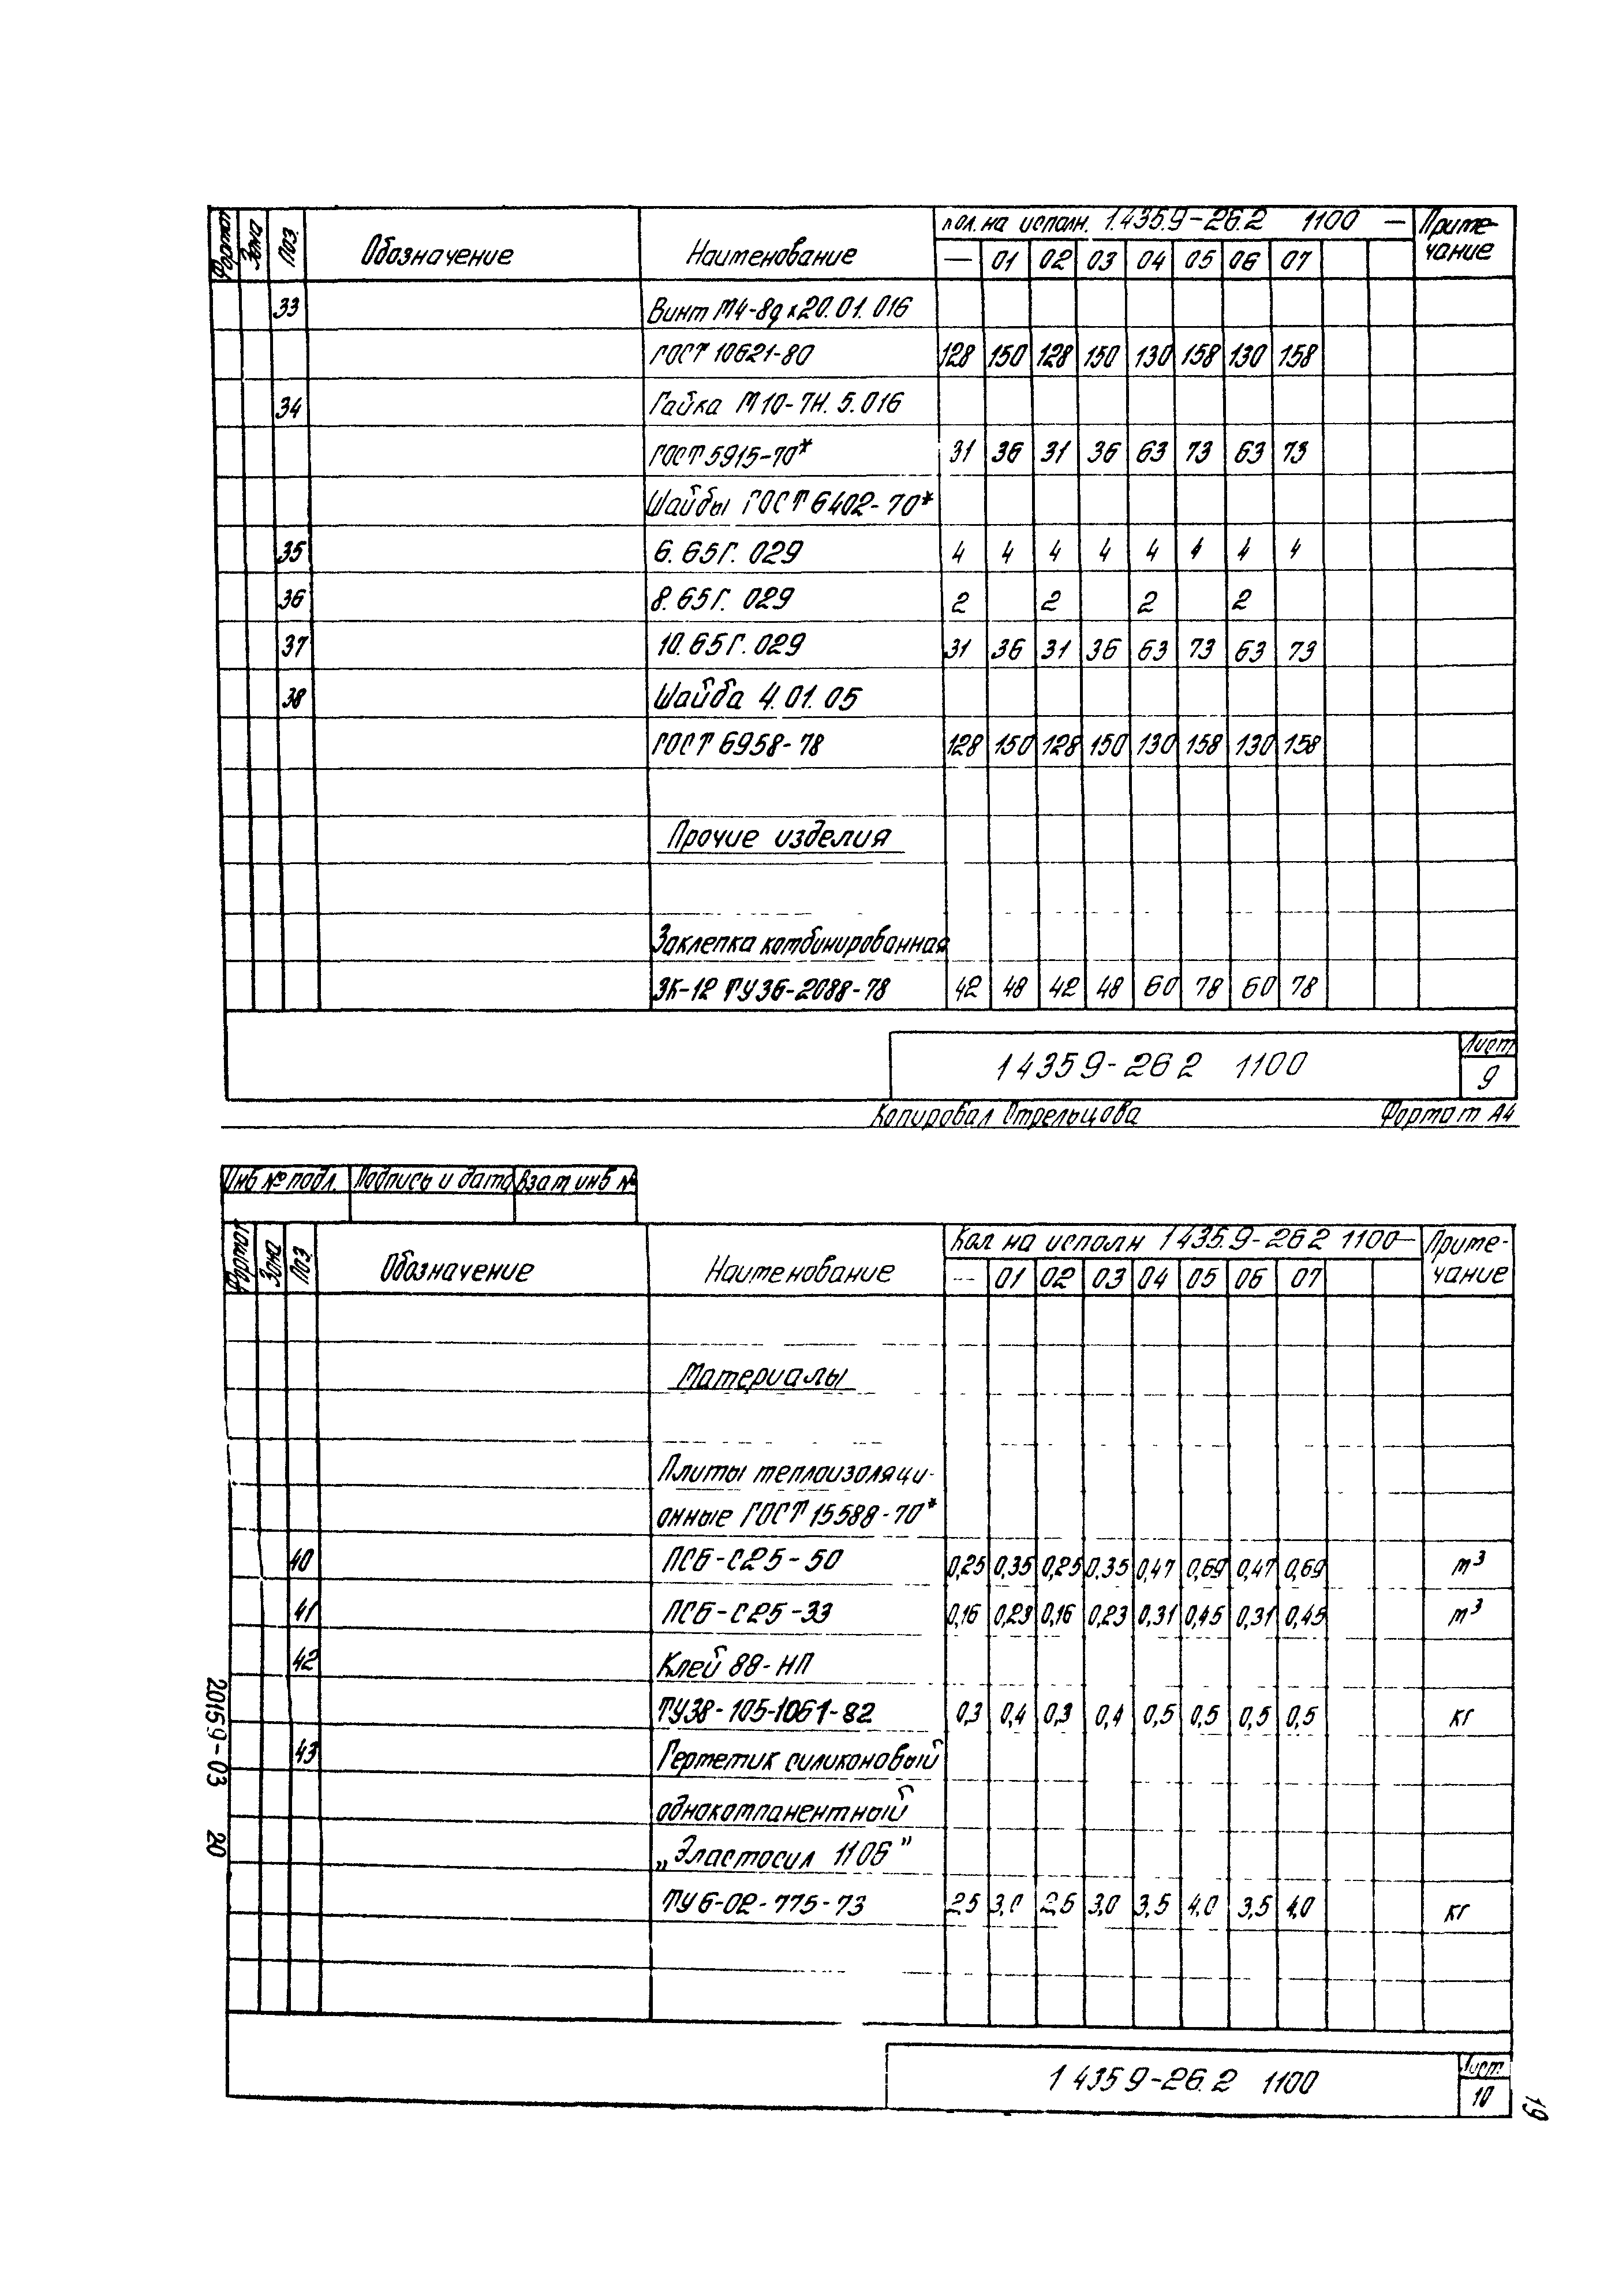 Формат Зона Поз. Обозначение Наименование Кол. на исполн. 1.435.9-26.2 1100 — Приме-
чание
— 01 02 03 04 05 06 07
33 Винт М4-8gх20.01.016
ГОСТ 10621-80 128 150 128 150 130 158 130 158
34 Гайка М10-7Н.5.016
ГОСТ 5915-70* 31 36 31 36 63 73 63 73
Шайбы ГОСТ 6402-70*
35 6.65Г.029 4 4 4 4 4 4 4 4
36 8.65Г.029 2 2 2 2
37 10.65Г.029 31 36 31 36 63 73 63 73
38 Шайба 4.01.05
ГОСТ 6958-78 128 150 128 150 130 158 130 158
Прочие изделия
Заклепка комбинированная
ЗК-12 ТУ36-2088-78 42 48 42 48 60 78 60 78
1 435 9-26 2 1100 Лист
9
Копировал Стрельцова Формат А4
Инв № подл. Подпись и дата Взам инв №
Формат Зона Поз. Обозначение Наименование Кол на исполн 1 435.9-26 2 1100— Приме-
чание
— 01 02 03 04 05 06 07
Материалы
Плиты теплоизоляци-
онные ГОСТ 15588-70*
40 ПСБ-С25-50 0,25 0,35 0,25 0,35 0,47 0,69 0,47 0,69 м³
41 ПСБ-С25-33 0,16 0,23 0,16 0,23 0,31 0,45 0,31 0,45 м³
42 Клей 88-НП
ТУ38-105-1061-82 0,3 0,4 0,3 0,4 0,5 0,5 0,5 0,5 кг
43 Герметик силиконовый
однокомпанентный
„Эластосил 1106”
ТУ6-02-775-73 2,5 3,0 2,5 3,0 3,5 4,0 3,5 4,0 кг
1 435 9-26.2 1100 Лист.
10
20159-03 20
19